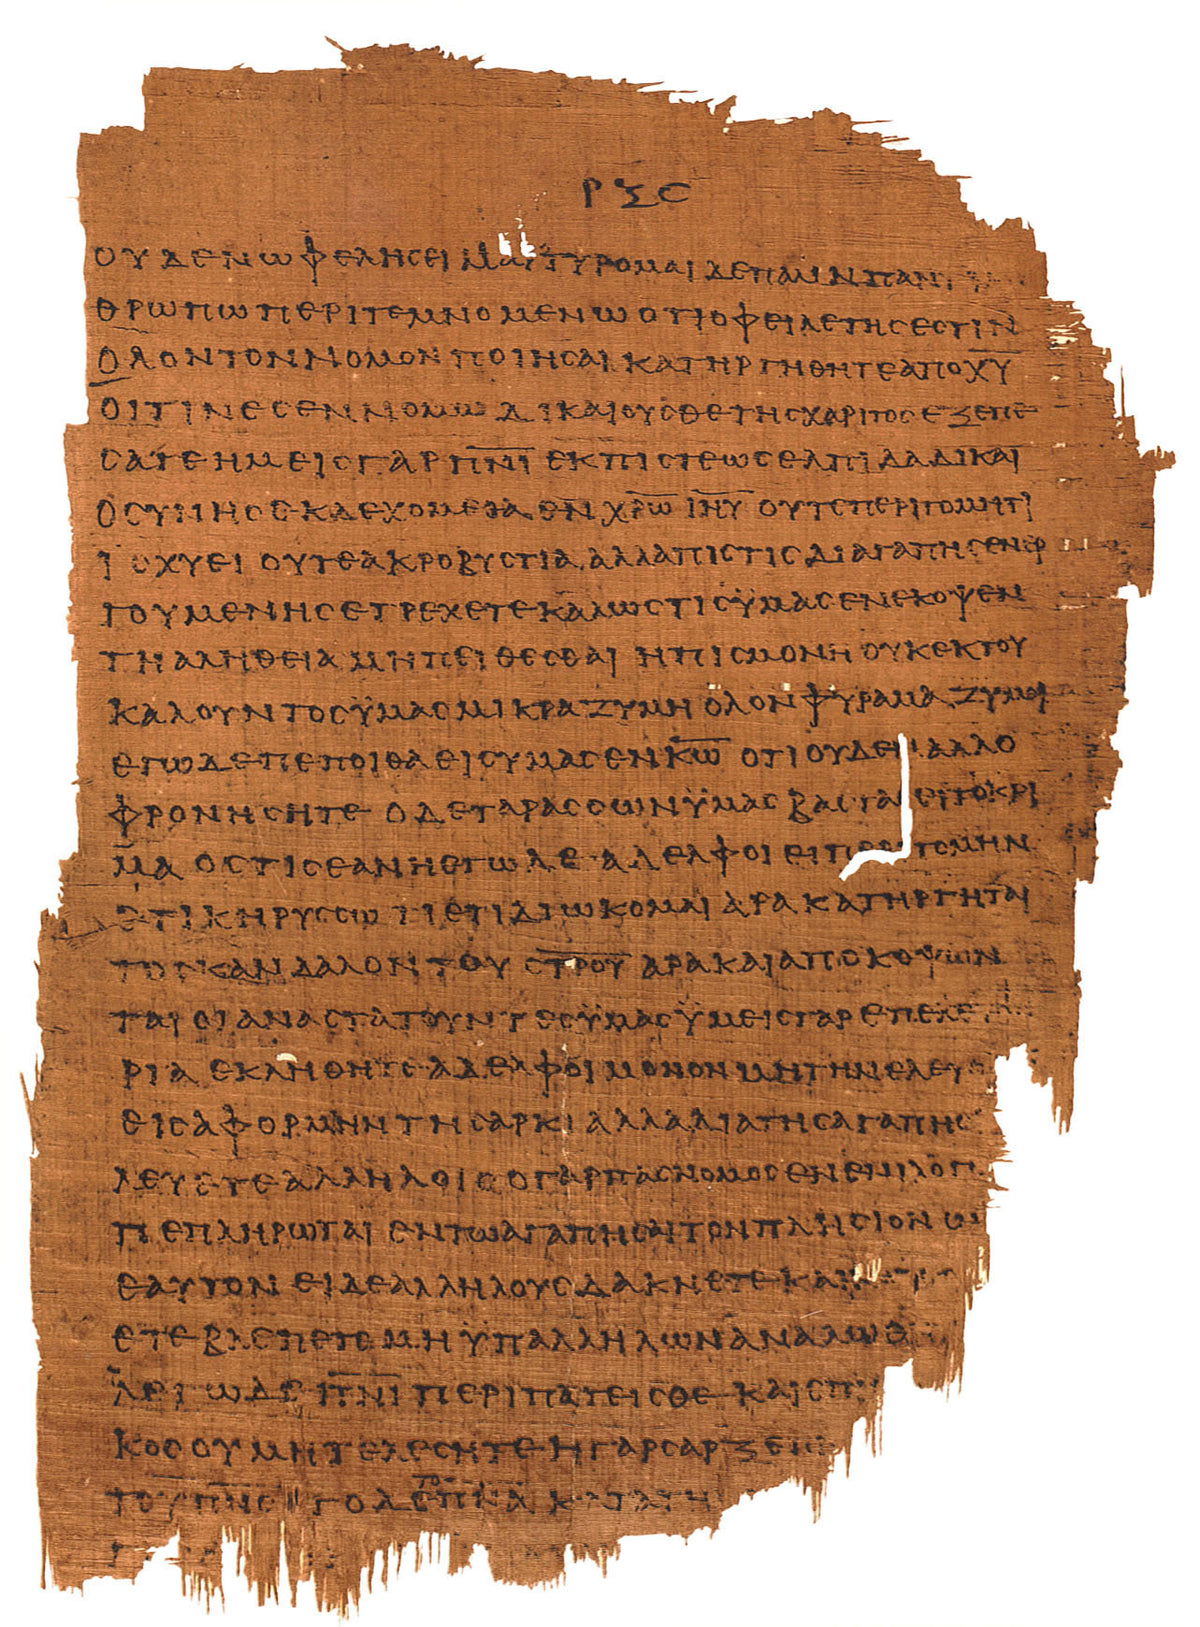 ΡΞϚ
ΟΥΔΕΝ ΩΦΕΛΗϹΕΙ ΜΑΡΤΥΡΟΜΑΙ ΔΕ ΠΑΛΙΝ
ΘΡΩΠΩ ΠΕΡΙΤΕΜΝΟΜΕΝΩ ΟΤΙ ΟΦΕΙΛΕΤΗϹ ΕϹΤΙΝ
ΟΛΟΝ ΤΟΝ ΝΟΜΟΝ ΠΟΙΗϹΑΙ ΚΑΤΗΡΓΗΘΗΤΕ ΑΠΟ Χ̅Υ̅
ΟΙΤΙΝΕϹ ΕΝ ΝΟΜΩ ΔΙΚΑΙΟΥϹΘΕ ΤΗϹ ΧΑΡΙΤΟϹ ΕΞΕΠΕ
ϹΑΤΕ ΗΜΕΙϹ ΓΑΡ Π̅Ν̅Ι̅ ΕΚ ΠΙϹΤΕΩϹ ΕΛΠΙΔΑ ΔΙΚΑΙ
ΟϹΥΝΗϹ ΕΚΔΕΧΟΜΕΘΑ ΕΝ Χ̅Ρ̅Ω̅ Ι̅Η̅Υ̅ ΟΥΤΕ ΠΕΡΙΤΟΜΗ ΤΙ
ΙϹΧΥΕΙ ΟΥΤΕ ΑΚΡΟΒΥϹΤΙΑ ΑΛΛΑ ΠΙϹΤΙϹ ΔΙ ΑΓΑΠΗϹ ΕΝΕΡ
ΓΟΥΜΕΝΗϹ ΕΤΡΕΧΕΤΕ ΚΑΛΩϹ ΤΙϹ ΫΜΑϹ ΕΝΕΚΟΨΕΝ
ΤΗ ΑΛΗΘΕΙΑ ΜΗ ΠΕΙΘΕϹΘΑΙ Η ΠΙϹΜΟΝΗ ΟΥΚ ΕΚ ΤΟΥ
ΚΑΛΟΥΝΤΟϹ ΫΜΑϹ ΜΙΚΡΑ ΖΥΜΗ ΟΛΟΝ ΦΥΡΑΜΑ ΖΥΜΟΙ
ΕΓΩ ΔΕ ΠΕΠΟΙΘΑ ΕΙϹ ΥΜΑϹ ΕΝ Κ̅Ω̅ ΟΤΙ ΟΥΔΕΝ ΑΛΛΟ
ΦΡΟΝΗϹΗΤΕ Ο ΔΕ ΤΑΡΑϹϹΩΝ ΫΜΑϹ ΒΑϹΤΑϹΕΙ ΤΟ ΚΡΙ
ΜΑ ΟϹΤΙϹ ΕΑΝ Η ΕΓΩ ΔΕ ΑΔΕΛΦΟΙ ΕΙ ΠΕΡΙΤΟΜΗΝ
ΕΤΙ ΚΗΡΥϹϹΩ ΤΙ ΕΤΙ ΔΙΩΚΟΜΑΙ ΑΡΑ ΚΑΤΗΡΓΗΤΑΙ
ΤΟ ϹΚΑΝΔΑΛΟΝ ΤΟΥ Ϲ̅Τ̅Ρ̅Ο̅Υ̅ ΑΡΑ ΚΑΙ ΑΠΟΚΟΨΩΝ
ΤΑΙ ΟΙ ΑΝΑϹΤΑΤΟΥΝΤΕϹ ΫΜΑϹ ΫΜΕΙϹ ΓΑΡ ΕΠ ΕΛΕ
ΡΙΑ ΕΚΛΗΘΗΤΕ ΑΔΕΛΦΟΙ ΜΟΝΟΝ ΜΗ ΤΗΝ ΕΛΕΥ
ΘΙϹ ΑΦΟΡΜΗΝ ΤΗ ϹΑΡΚΙ ΑΛΛΑ ΔΙΑ ΤΗϹ ΑΓΑΠΗϹ
ΛΕΥΕΤΕ ΑΛΛΗΛΟΙϹ Ο ΓΑΡ ΠΑϹ ΝΟΜΟϹ ΕΝ ΕΝΙ ΛΟΓ
ΠΕΠΛΗΡΩΤΑΙ ΕΝ ΤΩ ΑΓΑΠΗϹΑΙ ΤΟΝ ΠΛΗϹΙΟΝ
ΕΑΥΤΟΝ ΕΙ ΔΕ ΑΛΛΗΛΟΥϹ ΔΑΚΝΕΤΕ ΚΑΙ
ΕΤΕ ΒΛΕΠΕΤΕ ΜΗ ΫΠ ΑΛΛΗΛΩΝ ΑΝΑΛΩΘ
ΛΕΓΩ ΔΕ Π̅Ν̅Ι̅ ΠΕΡΙΠΑΤΕΙϹΘΕ ΚΑΙ ΕΠΙ
ΚΟϹ ΟΥ ΜΗ ΤΕΛΕϹΗΤΕ Η ΓΑΡ ϹΑΡΞ ΕΠΙ
ΤΟΥ Π̅Ν̅Ϲ̅ ΤΟ ΔΕ Π̅Ν̅Α̅ ΚΑΤΑ ΤΗ